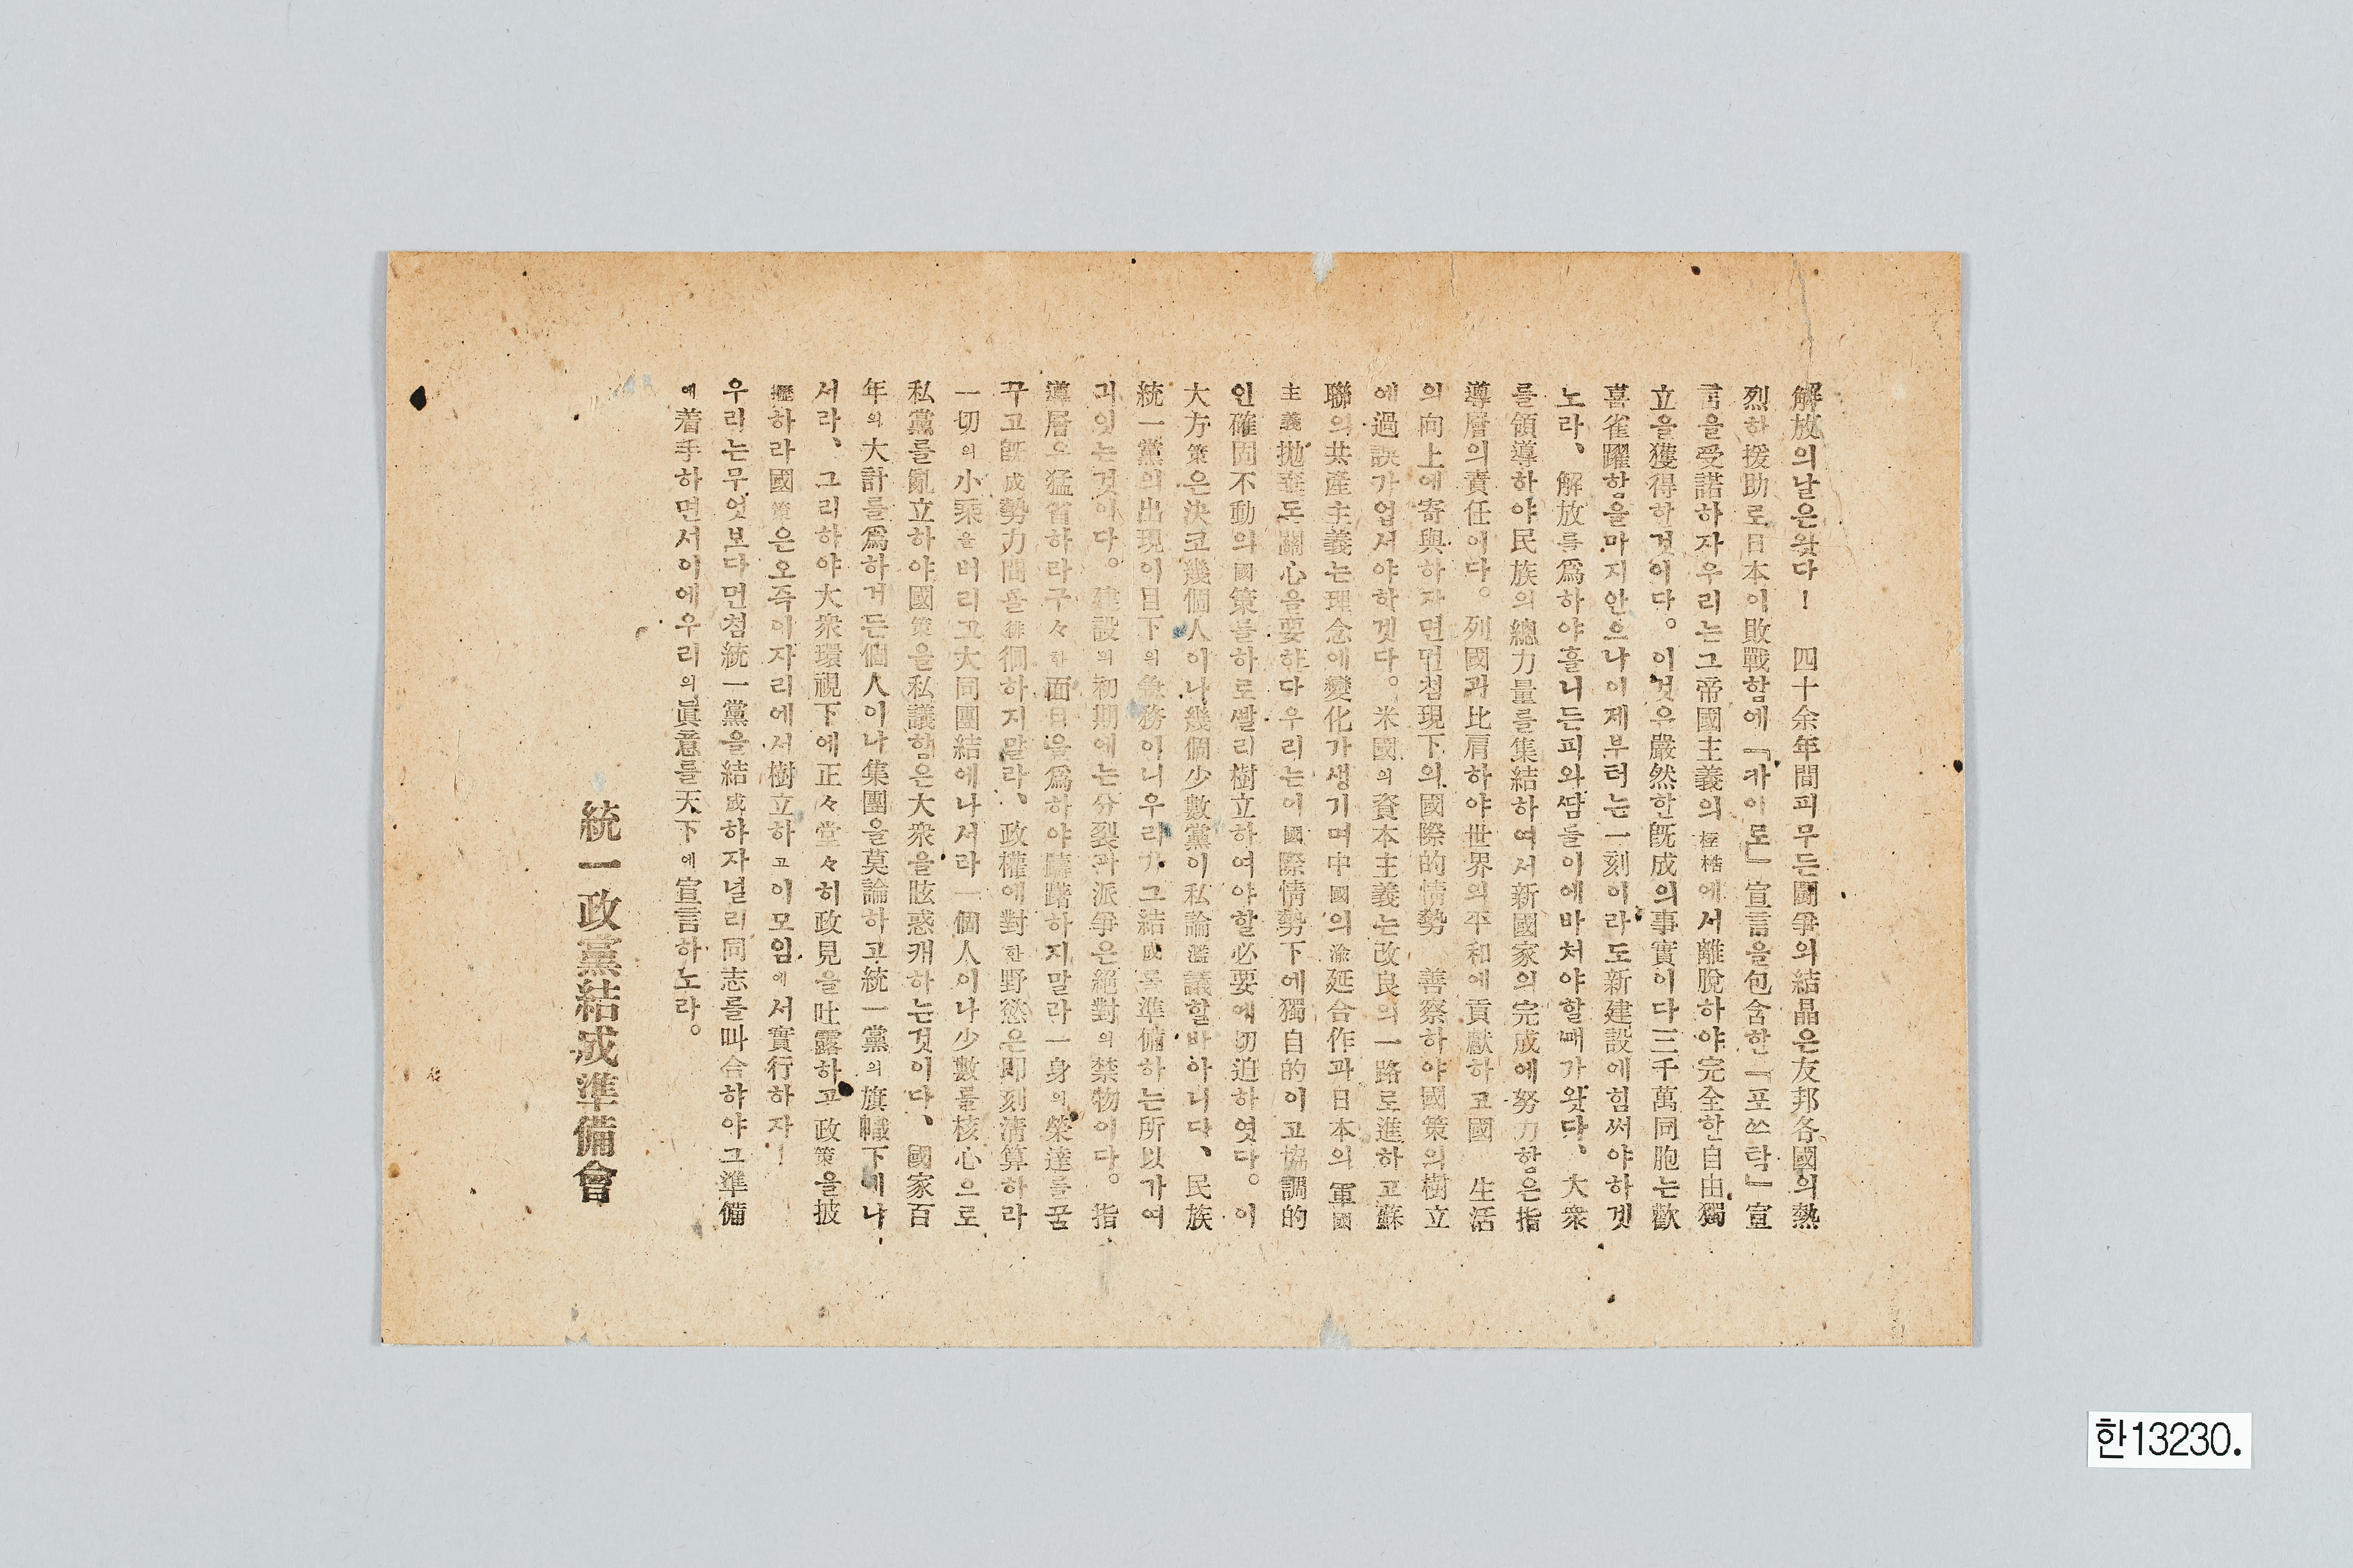 解放의날은왓다！　四十余年間피무든鬪爭의結晶은友邦各國의熱
烈하援助로日本이敗戰함에「카이로」宣言을包含한「포쓰탁」宣
言을受諾하자우리는그帝國主義의桎梏에서離脫하야完全한自由獨
立을獲得한것이다。이것은嚴然한旣成의事實이다三千萬同胞는歡
喜雀躍함을마지안으나이제부터는一刻이라도新建設에힘써야하겟
노라、解放를爲하야흘니든피와땀들이에바처야할때가왓다、大衆
를領導하야民族의總力量를集結하여서新國家의完成에努力함은指
導層의責任이다。列國과比肩하야世界의平和에貢獻하고國　生活
의向上에寄與하자면먼첨現下의國際的情勢　善察하야國策의樹立
에過誤가업서야하겟다。米國의資本主義는改良의一路로進하고蘇
聯의共產主義는理念에變化가생기며中國의延合作과日本의軍國
主義拋棄도關心을要한다우리는이國際情勢下에獨自的이고協調的
인確固不動의國策를하로빨리樹立하여야할必要에切迫하엿다。이
大方策은決코幾個人이나幾個少數黨이私論濫議할바아니다、民族
統一黨의出現이目下의急務이니우리가그結成를準備하는所以가여
긔잇는것이다。建設의初期에는分裂과派爭은絕對의禁物이다。指
導層은猛省하라구々한面目을爲하야躊躇하지말라一身의榮達를꿈
꾸고旣成勢力間를徘徊하지말라、政權에對한野慾은即刻淸算하라
一切의小乘을버리고大同團結에나서라一個人이나少數를核心으로
私黨를亂立하야國策을私議함은大衆을眩惑캐하는것이다、國家百
年의大計를爲하거든個人이나集團을莫論하고統一黨의旗幟下에나
서라、그리하야大衆環視下에正々堂々히政見을吐露하고政策을披
瀝하라國策은오즉이자리에서樹立하고이모임에서實行하자！
우리는무엇보다먼첨統一黨을結成하자널리同志를叫合하야그準備
에着手하면서이에우리의眞意를天下에宣言하노라。
統一政黨結成準備會
한13230.